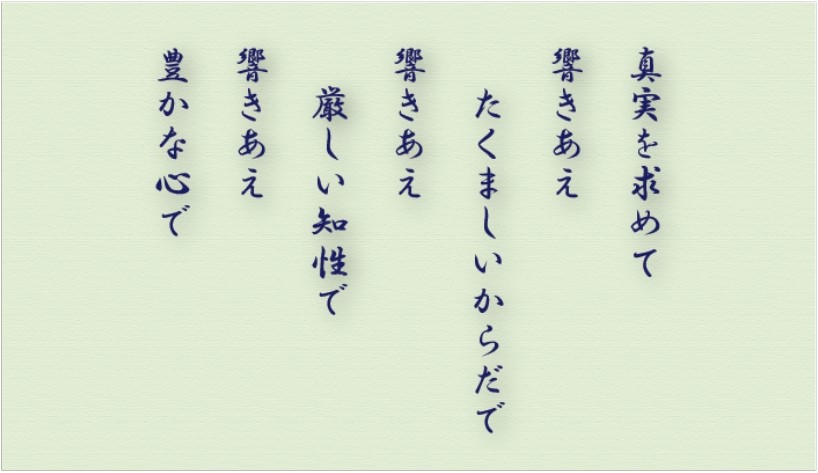 真実を求めて
響きあえ
たくましいからだで
響きあえ
厳しい知性で
響きあえ
豊かな心で